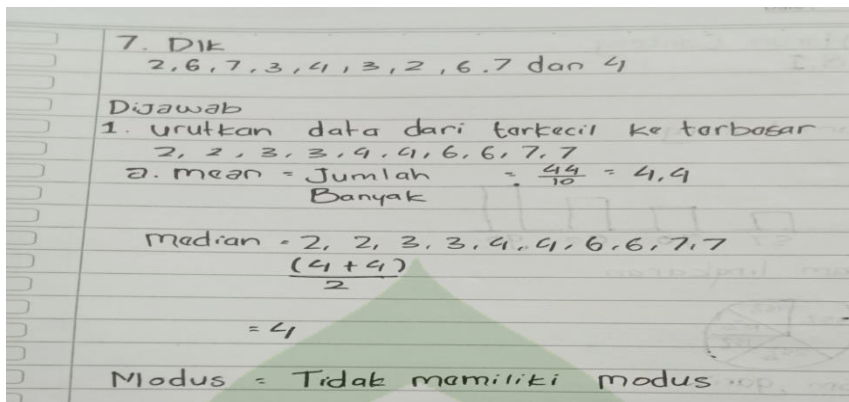 7. Dik
2, 6, 7, 3, 4, 3, 2, 6, 7 dan 4
Dijawab
1. urutkan data dari terkecil ke terbesar
2, 2, 3, 3, 4, 4, 6, 6, 7, 7
a. mean = Jumlah = 44/10 = 4,4
Banyak
median = 2, 2, 3, 3, 4, 4, 6, 6, 7, 7
(4 + 4)
2
= 4
Modus = Tidak memiliki modus